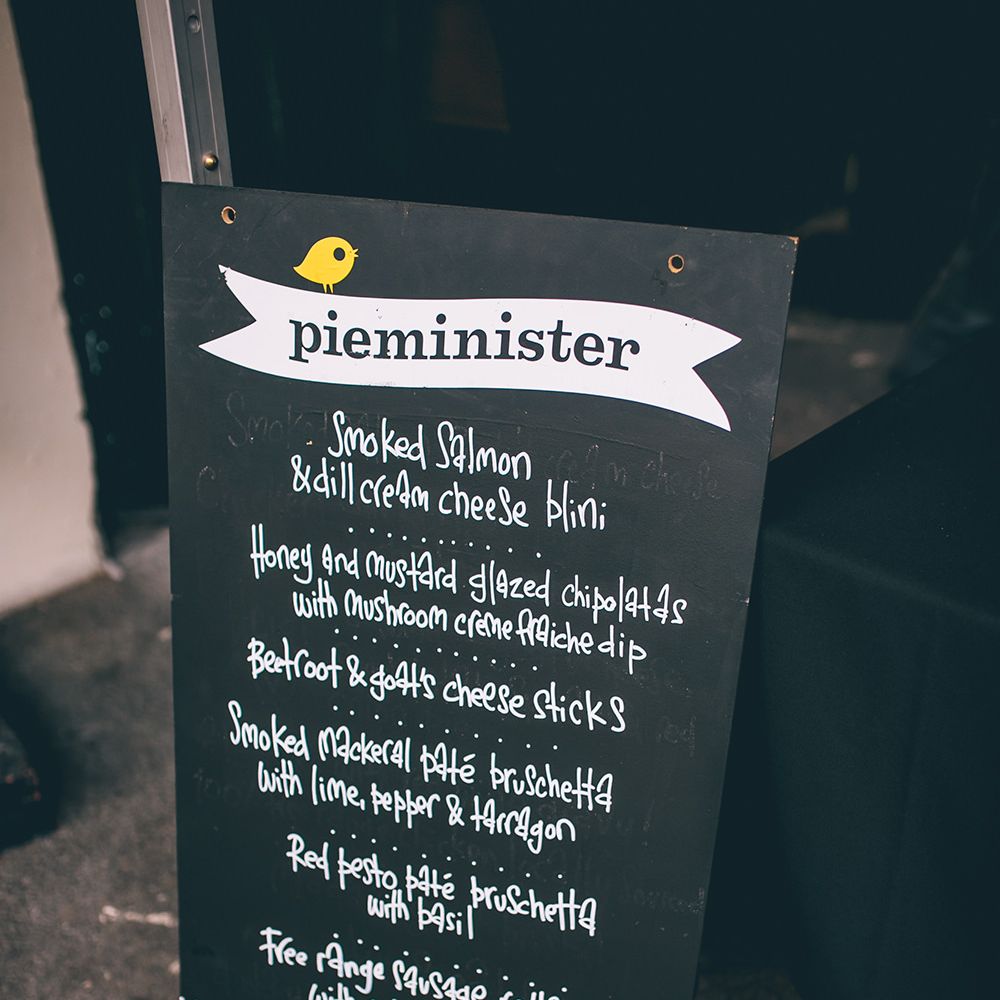 pieminister
Smoked Salmon
& dill cream cheese blini
Honey and mustard glazed chipolatas
with mushroom creme fraiche dip
Beetroot & goat's cheese sticks
Smoked Mackeral pâté bruschetta
with lime, pepper & tarragon
Red pesto pâté bruschetta
with basil
Free range sausage